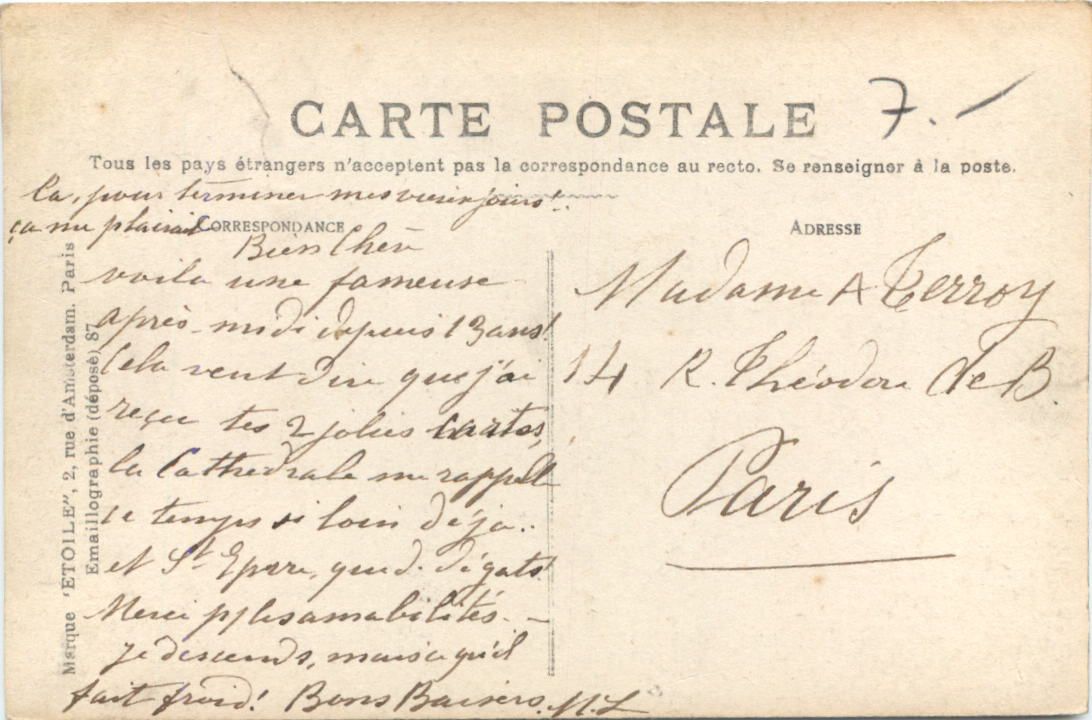 CARTE POSTALE
7.-
Tous les pays étrangers n'acceptent pas la correspondance au recto. Se renseigner à la poste.
là, pour terminer mes vieux jours!..
ça me plairait
CORRESPONDANCE
ADRESSE
Bien Chère
voila une fameuse
après-midi depuis 13 ans!
Cela veut dire que j'ai
reçu tes 2 jolies cartes,
la Cathedrale me rappelle
le temps si loin déja..
et St Epvre, que d. dégats!
Merci pr les amabilités. -
Je descends, mais ce qu'il
fait froid! Bons Baisers. M.L
Madame A Terroy
14 R. Théodore de B.
Paris
Marque "ETOILE", 2, rue d'Amsterdam. Paris
Emaillographie (déposé) 87